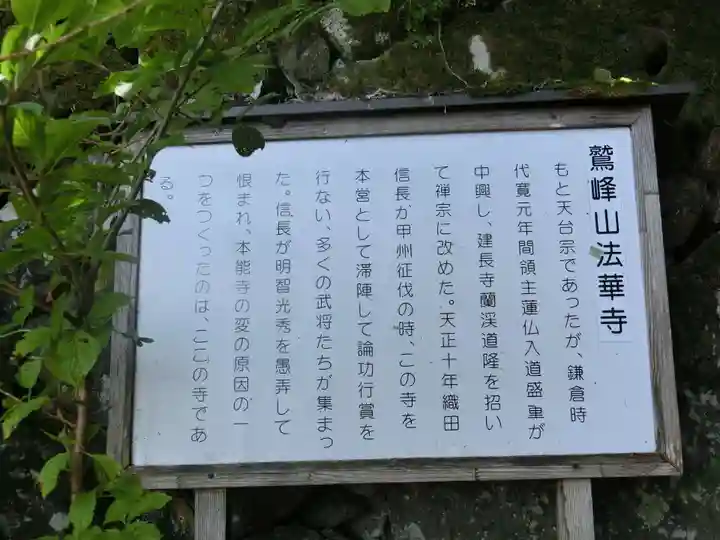 鷲峰山法華寺
もと天台宗であったが、鎌倉時
代寛元年間領主蓮仏入道盛重が
中興し、建長寺蘭渓道隆を招い
て禅宗に改めた。天正十年織田
信長が甲州征伐の時、この寺を
本営として滞陣して論功行賞を
行ない、多くの武将たちが集まっ
た。信長が明智光秀を愚弄して
恨まれ、本能寺の変の原因の一
つをつくったのは、ここの寺であ
る。